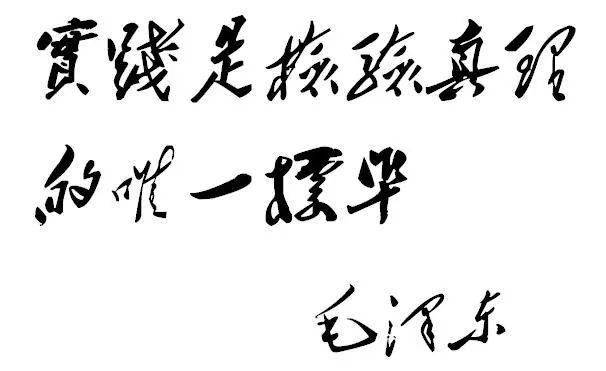 實踐是檢驗真理
的唯一標準
毛澤东